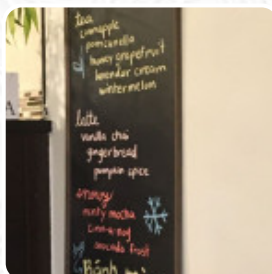 tea
pineapple
honey grapefruit
lavender cream
wintermelon
latte
vanilla chai
gingerbread
pumpkin spice
minty mocha
cinn-a-nog
avocado frost
Bánh